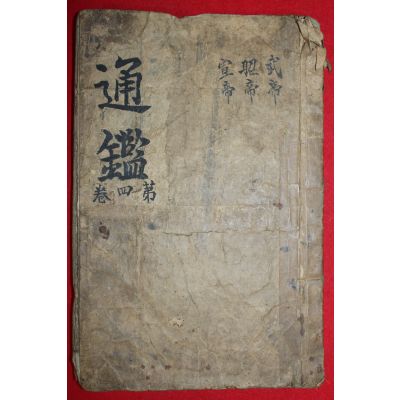 武帝
昭帝
宣帝
通鑑
苐四卷